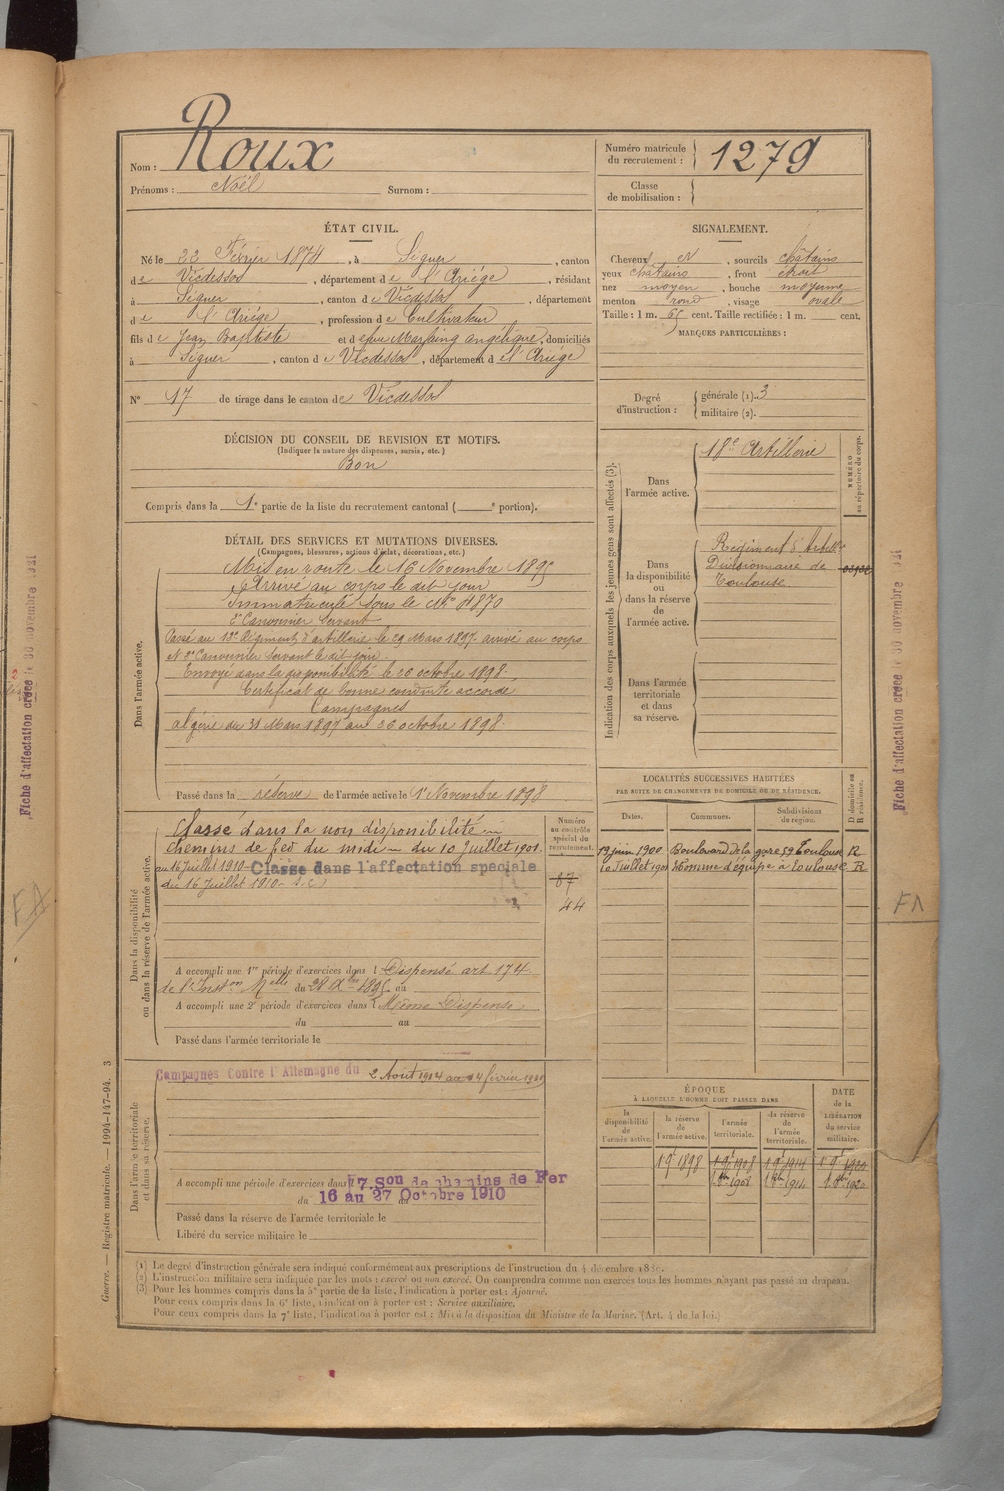 Nom : Roux
Prénoms : Noël Surnom :
Numéro matricule du recrutement : 1279
Classe de mobilisation :
ÉTAT CIVIL.
Né le 22 Février 1874, à Siguer, canton
de Vicdessos, département de l'Ariége, résidant
à Siguer, canton de Vicdessos, département
de l'Ariége, profession de Cultivateur
fils de Jean Baptiste et de feue Marfaing angélique, domiciliés
à Siguer, canton de Vicdessos, département de l'Ariége
N° 17 de tirage dans le canton de Vicdessos
SIGNALEMENT.
Cheveux et, sourcils châtains
yeux châtains, front étroit
nez moyen, bouche moyenne
menton rond, visage ovale
Taille : 1 m. 65 cent. Taille rectifiée : 1 m. cent.
MARQUES PARTICULIÈRES :
Degré d'instruction : générale (1). 3
militaire (2).
DÉCISION DU CONSEIL DE REVISION ET MOTIFS.
(Indiquer la nature des dispenses, sursis, etc.)
Bon
Compris dans la 1e partie de la liste du recrutement cantonal ( e portion).
DÉTAIL DES SERVICES ET MUTATIONS DIVERSES.
(Campagnes, blessures, actions d'éclat, décorations, etc.)
Dans l'armée active.
Mis en route le 16 Novembre 1895
Arrivé au corps le dit jour
Immatriculé sous le N° 4870
2e Canonnier Servant
Passé au 13e Régiment d'artillerie le 29 Mars 1897. arrivé au corps
et 2e Canonnier Servant le dit jour.
Envoyé dans la disponibilité le 26 octobre 1898.
Certificat de bonne conduite accordé
Campagnes
algérie du 31 Mars 1897 au 26 octobre 1898.
Passé dans la réserve de l'armée active le 1er Novembre 1898
Indication des corps auxquels les jeunes gens sont affectés (3).
NUMÉRO au répertoire du corps.
Dans l'armée active.
18e Artillerie
Dans la disponibilité ou dans la réserve de l'armée active.
Régiment d'Artillie
Divisionnaire de
Toulouse
Dans l'armée territoriale et dans sa réserve.
Dans la disponibilité ou dans la réserve de l'armée active.
Classé dans la non disponibilité
chemins de fer du midi du 10 Juillet 1901.
au 16 Juillet 1910 Classé dans l'affectation spéciale
du 16 Juillet 1910
Numéro au contrôle spécial du recrutement.
87
44
A accompli une 1re période d'exercices dans l Dispensé art 174
de l'Inston Melle du 28 Xbre 1895 au
A accompli une 2e période d'exercices dans l Même Dispense
du au
Passé dans l'armée territoriale le
LOCALITÉS SUCCESSIVES HABITÉES
PAR SUITE DE CHANGEMENTS DE DOMICILE OU DE RÉSIDENCE.
Dates. Communes. Subdivisions de région. D domicile ou R résidence.
19 juin 1900 Boulevard de la gare 59 Toulouse R
10 Juillet 1901 Homme d'équipe à Toulouse R
Dans l'armée territoriale et dans sa réserve.
Campagnes Contre l'Allemagne du 2 Août 1914 au 4 février 1919
A accompli une période d'exercices dans 7. Son de chemins de Fer
du 16 au 27 Octobre 1910
Passé dans la réserve de l'armée territoriale le
Libéré du service militaire le
ÉPOQUE
À LAQUELLE L'HOMME DOIT PASSER DANS
la disponibilité de l'armée active. la réserve de l'armée active. l'armée territoriale. la réserve de l'armée territoriale. DATE de la LIBÉRATION du service militaire.
1 9 1898 1 9 1908 1 9 1914 1 9 1920
1 8bre 1908 1 8bre 1914 1 8bre 1920
(1) Le degré d'instruction générale sera indiqué conformément aux prescriptions de l'instruction du 4 décembre 1886.
(2) L'instruction militaire sera indiquée par les mots : exercé ou non exercé. On comprendra comme non exercés tous les hommes n'ayant pas passé au drapeau.
(3) Pour les hommes compris dans la 5e partie de la liste, l'indication à porter est : Ajourné.
Pour ceux compris dans la 6e liste, l'indication à porter est : Service auxiliaire.
Pour ceux compris dans la 7e liste, l'indication à porter est : Mis à la disposition du Ministre de la Marine. (Art. 4 de la loi.)
Guerre. — Registre matricule. — 1994-147-94. 3
Fiche d'affectation créée le 30 novembre 1921
FA
Fiche d'affectation créée le 30 novembre 1921
FA